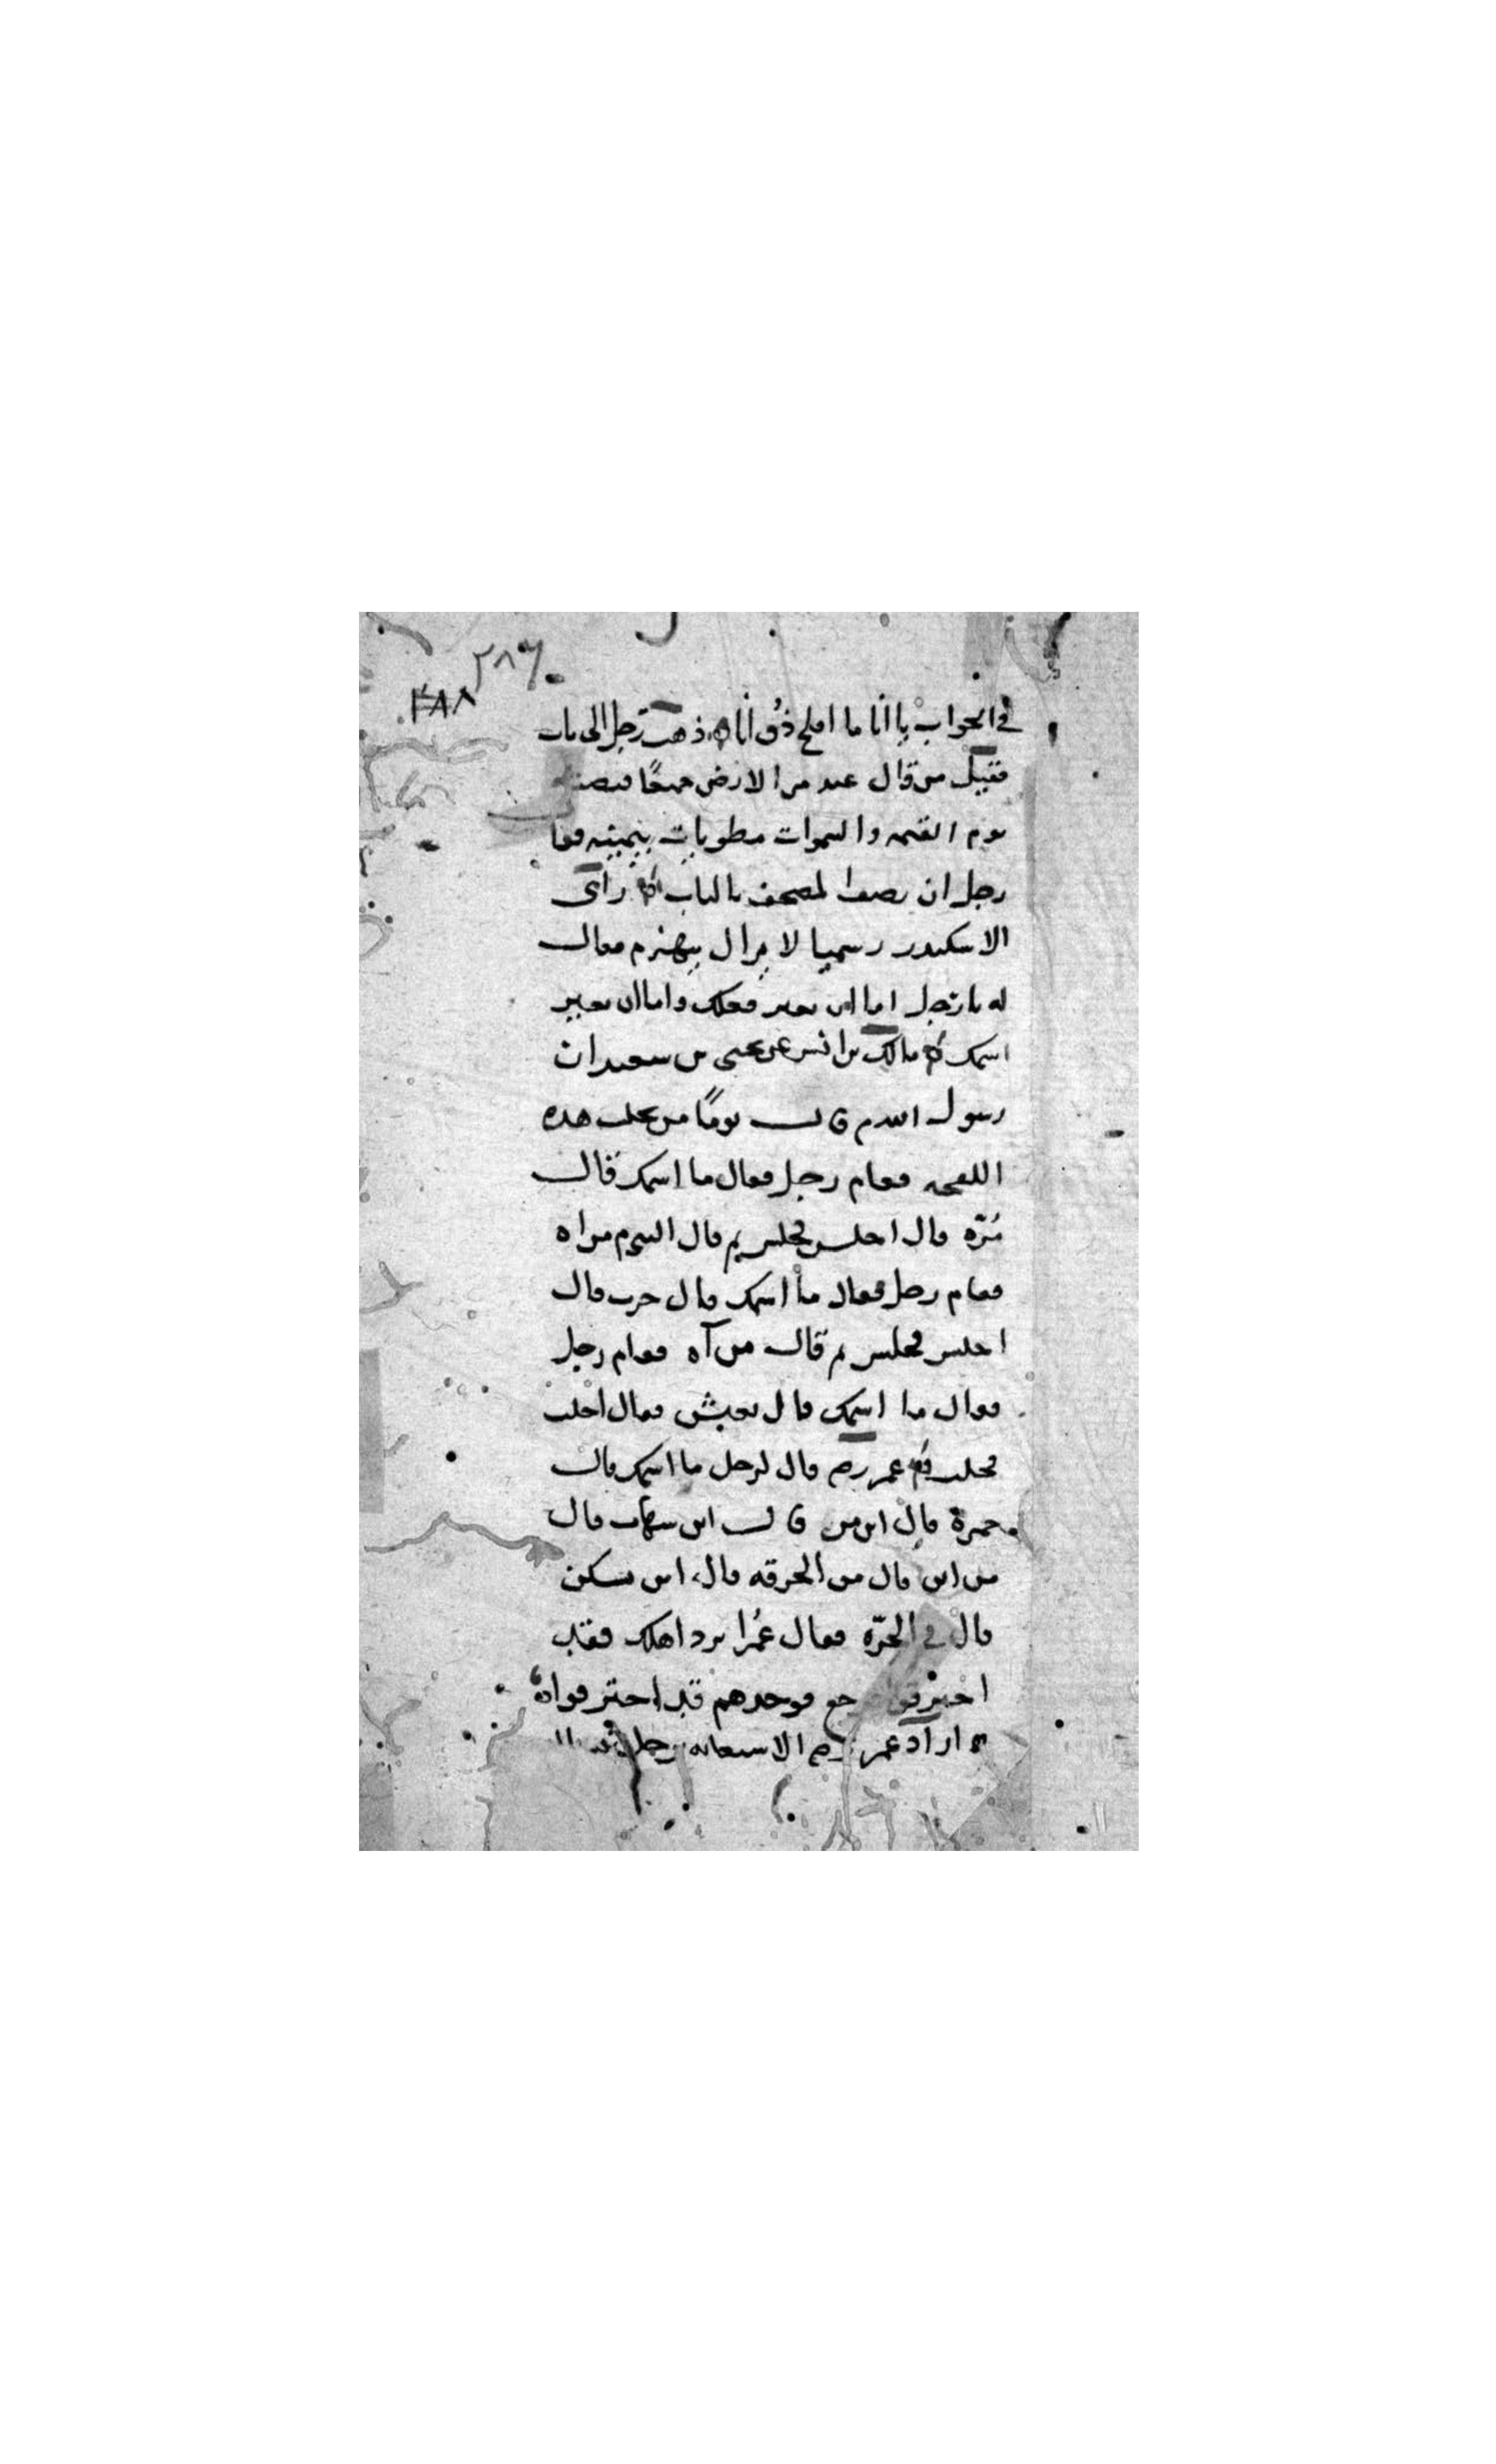 ٢٨٦
٢٨٨
في الجواب يا انا ما املح ذق انا ذهب رجل الى باب
فقيل من قال عند من الارض جميعا قبضته
يوم القيمة والسموات مطويات بيمينه فقا
رجل ان يصف المصحف بالباب رأى
الاسكندر سميا لا يزال ينهزم فقال
له يا رجل اما ان تغير فعلك واما ان تغير
اسمك مالك بن انس عن يحيى بن سعيد ان
رسول الله م قال يوما من يحلب هذه
اللقحه فقام رجل فقال ما اسمك قال
مُرّه قال اجلس فجلس ثم قال اليوم من اه
فقام رجل فقال ما اسمك قال حرب قال
اجلس فجلس ثم قال من آه فقام رجل
فقال ما اسمك قال يعيش فقال احلب
فحلب عمر رضـ قال لرجل ما اسمك قال
جمرة قال ابن من قال ابن شهاب قال
من اين قال من الحرقه قال اين تسكن
قال في الحرّه فقال عُمر ابرد اهلك فقد
احترقوا فرجع فوجدهم قد احترقوا
اراد عمر رضـ الاستعانه برجل